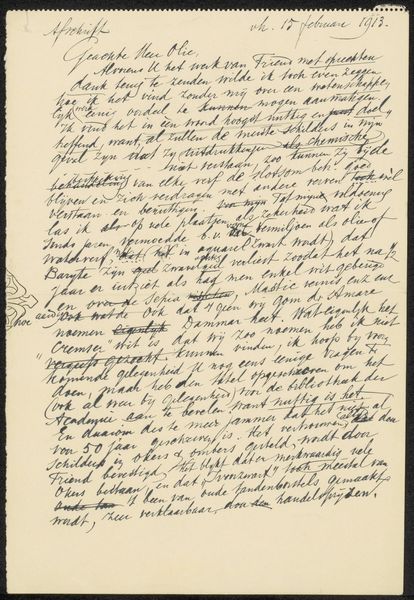 Afschrift vk. 15 februari 1913.
Geachte Heer Olie,
Alvorens U het werk van Friend met oprechten
dank terug te zenden wilde ik toch even zeggen
hoe ik het vind zonder mij over een wetenschappe-
lijk werk eenig oordeel te kunnen mogen aanmatigen
Ik vind het in een woord hoogst nuttig en juist doel
treffend, want, al zullen de meeste schilders in mijn
geval zijn dat zij uitdrukkingen als chemische
niet verstaan, zoo kunnen zij bij de
behandeling van elke verf de slotsom toch goed
blijven en zich verdragen met andere verven wil
verstaan en berusting. Tot mijne voldoening
las ik als op vele plaatsen als zekerheid wat ik
sends jaren vermoedde o.a. vermiljoen als olie of
waterverf, (dat het in aquarel zwart wordt) dat
Baryte zijn verliest zoodat het na 1/2
jaar er uit ziet als had men enkel wit gebruikt
en over de Sepia Mastic vernis enz enz
hoe aend Ook dat 't geen wij gom de Damare
noemen eigenlijk Dammar heet. Wat eigenlijk het
"Cremser" wit is dat wij zoo noemen heb ik niet
kunnen vinden, ik hoop bij
komende gelegenheid U nog eens eenige vragen te
doen, maar heb den titel opgeschreven om het
(ook al weer bij gelegenheid) voor de bibliotheek der
Academie aan te bevelen want nuttig is het
En daarom des te meer jammer dat het niet al
voor 50 jaar geschreven is. Het vertrouwen, dat den
schilders in okers & ombers gesteld, wordt door
Friend bevestigd, Het blijkt dat er merkwaardig vele
Okers bestaan, en dat "Ivoorzwart" toch meestal van
't been van oude tandenborstels gemaakt
wordt, zeer verklaarbaar, door den handelsprijzen.